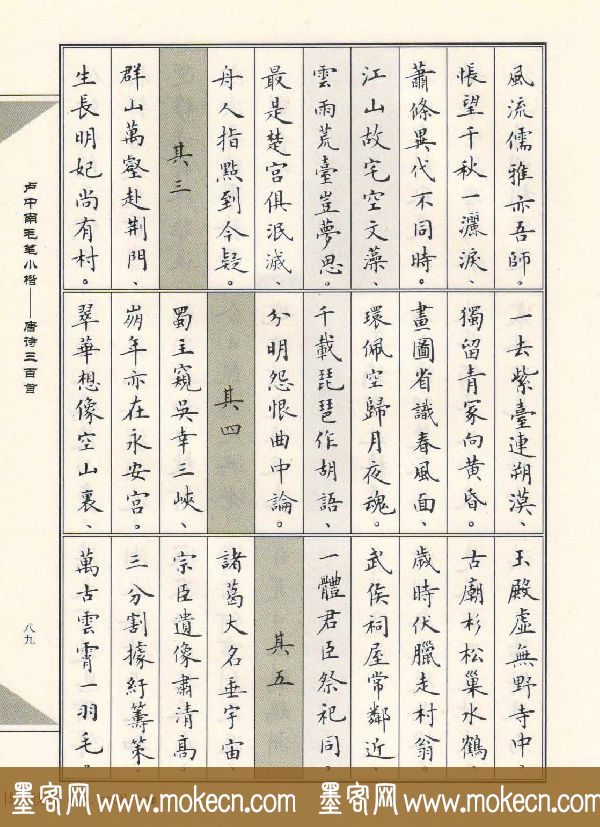 風流儒雅亦吾師。
悵望千秋一灑淚、
蕭條異代不同時。
江山故宅空文藻、
雲雨荒臺豈夢思。
最是楚宮俱泯滅、
舟人指點到今疑。
其三
群山萬壑赴荊門、
生長明妃尚有村。
一去紫臺連朔漠、
獨留青冢向黃昏。
畫圖省識春風面、
環佩空歸月夜魂。
千載琵琶作胡語、
分明怨恨曲中論。
其四
蜀主窺吳幸三峽、
崩年亦在永安宮。
翠華想像空山裏、
玉殿虛無野寺中。
古廟杉松巢水鶴、
歲時伏臘走村翁。
武侯祠屋常鄰近、
一體君臣祭祀同。
其五
諸葛大名垂宇宙、
宗臣遺像肅清高。
三分割據紆籌策、
萬古雲霄一羽毛。
卢中南毛笔小楷——唐诗三百首
八九
墨客网 www.mokecn.com 墨客网 www.mokecn.com